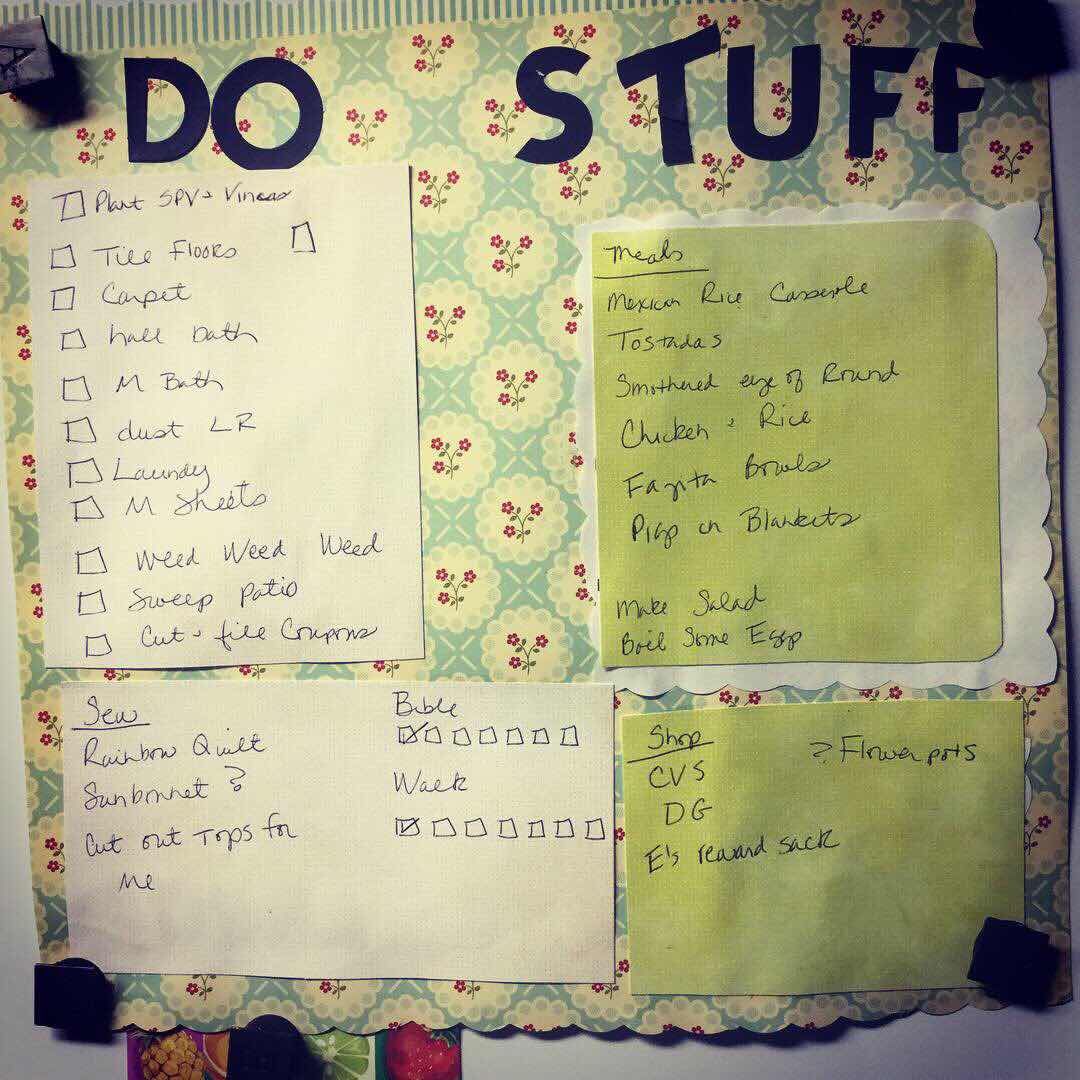 DO STUFF
Plant SPV & Vincas
Tile Floors
Carpet
hall bath
M Bath
dust LR
Laundy
M Sheets
Weed Weed Weed
Sweep Patio
Cut & file Coupons
Meals
Mexican Rice Casserole
Tostadas
Smothered eye of Round
Chicken & Rice
Fajita Bowls
Pigs in Blankets
Make Salad
Boil Some Eggs
Sew
Rainbow Quilt
Sunbonnet ?
Cut out Tops for
Me
Bible
Walk
Shop
CVS
DG
E's reward sack
? Flower pots